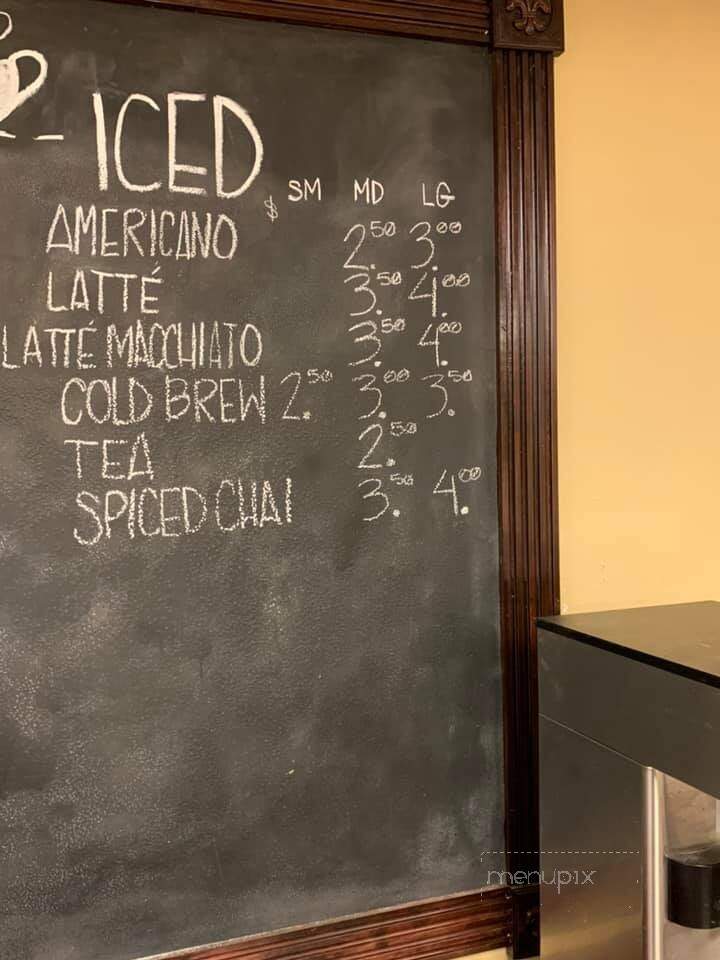 ICED
$ SM MD LG
AMERICANO 2.50 3.00
LATTÉ 3.50 4.00
LATTÉ MACCHIATO 3.50 4.00
COLD BREW 2.50 3.00 3.50
TEA 2.50
SPICED CHAI 3.50 4.00
menupix